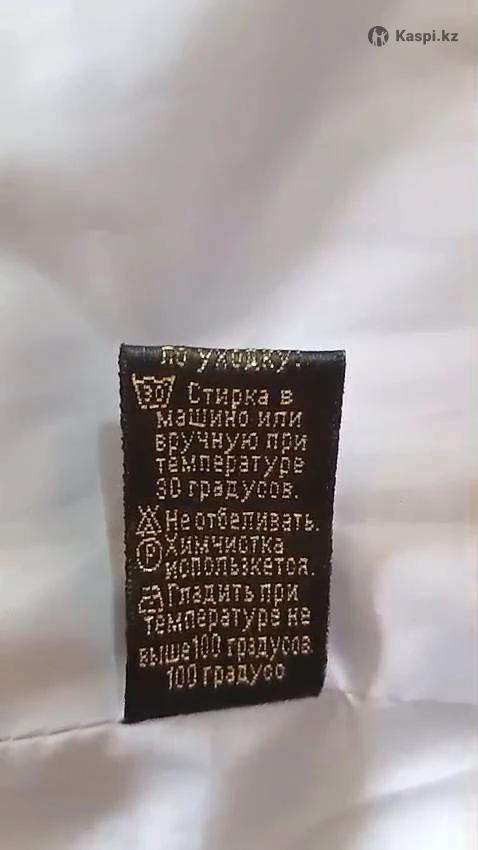 Kaspi.kz
по уходку:
30 Стирка в
машино или
вручную при
температуре
30 градусов.
Не отбеливать.
P Химчистка
использкется.
Гладить при
температура не
выше 100 градусов
100 градусо